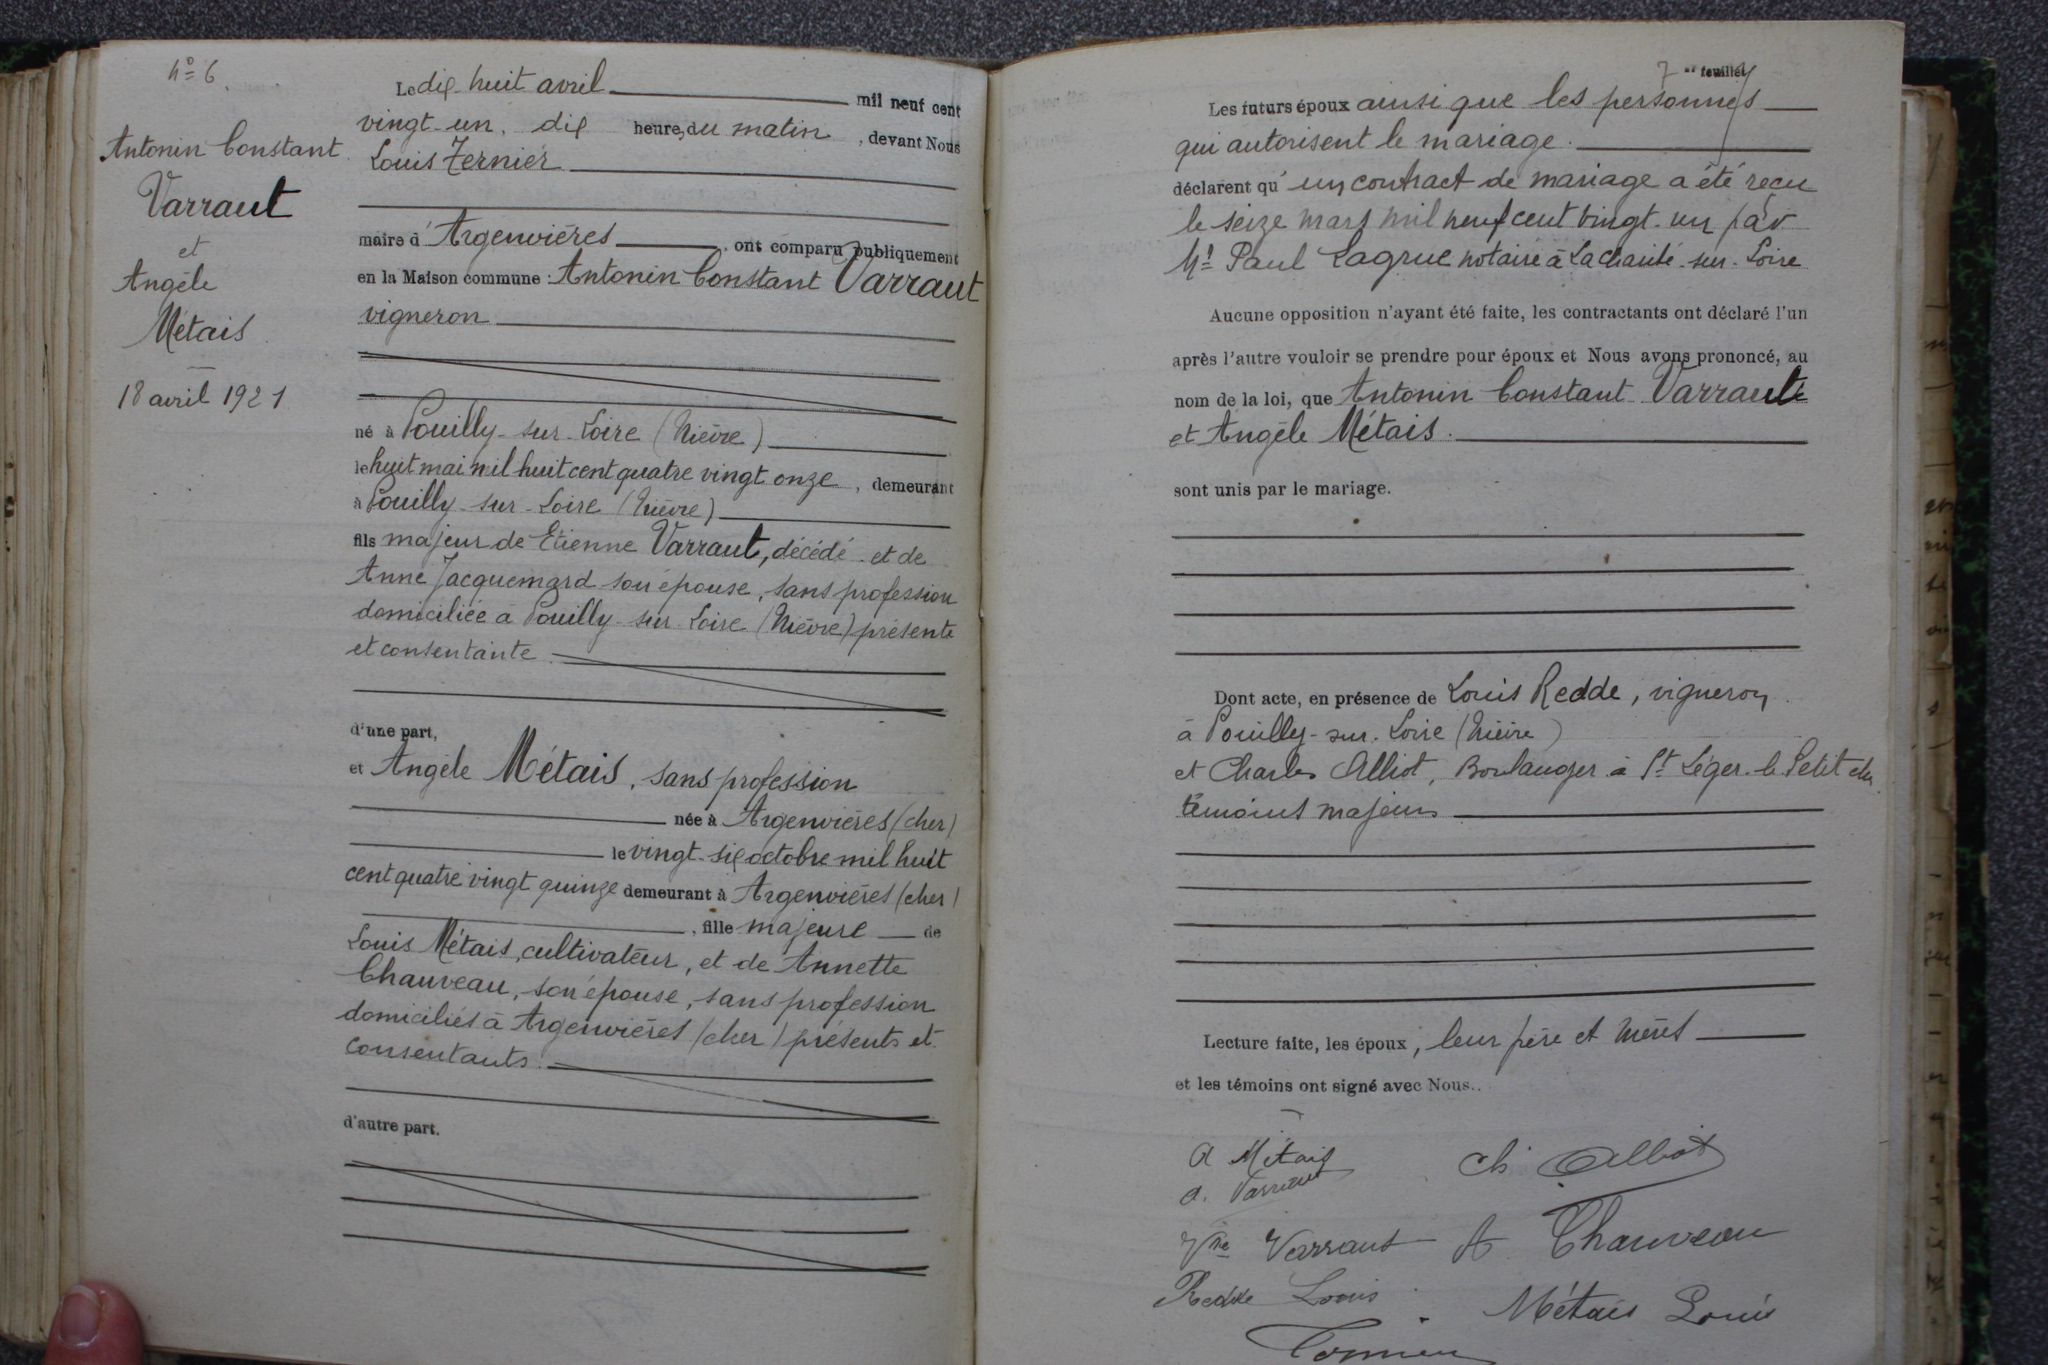 nº 6
Antonin Constant
Varraut
et
Angèle
Métais
18 avril 1921
Le dix huit avril mil neuf cent
vingt-un, dix heures du matin, devant Nous
Louis Ternier
maire d'Argenvières, ont comparu publiquement
en la Maison commune : Antonin Constant Varraut
vigneron
né à Pouilly-sur-Loire (Nièvre)
le huit mai mil huit cent quatre vingt onze, demeurant
à Pouilly-sur-Loire (Nièvre)
fils majeur de Etienne Varraut, décédé et de
Anne Jacquemard son épouse, sans profession
domiciliée à Pouilly-sur-Loire (Nièvre) présente
et consentante
d'une part,
et Angèle Métais, sans profession
née à Argenvières (cher)
le vingt-six octobre mil huit
cent quatre vingt quinze demeurant à Argenvières (cher)
, fille majeure de
Louis Métais, cultivateur, et de Annette
Chauveau, son épouse, sans profession
domiciliés à Argenvières (cher) présents et
consentants.
d'autre part.
7 me feuillet
Les futurs époux ainsi que les personnes
qui autorisent le mariage.
déclarent qu'un contract de mariage a été reçu
le seize mars mil neuf cent vingt-un par
Mt Paul Lagrue notaire à La charité-sur-Loire
Aucune opposition n'ayant été faite, les contractants ont déclaré l'un
après l'autre vouloir se prendre pour époux et Nous avons prononcé, au
nom de la loi, que Antonin Constant Varraut
et Angèle Métais.
sont unis par le mariage.
Dont acte, en présence de Louis Redde, vigneron
à Pouilly-sur-Loire (Nièvre)
et Charles Alliot, Boulanger à St Léger-le-Petit
témoins majeurs
Lecture faite, les époux, leur père et mères
et les témoins ont signé avec Nous..
A Métais
Ch. Alliot
A. Varraut
Vve Varraut
A Chauveau
Redde Louis
Métais Louis
Ternier